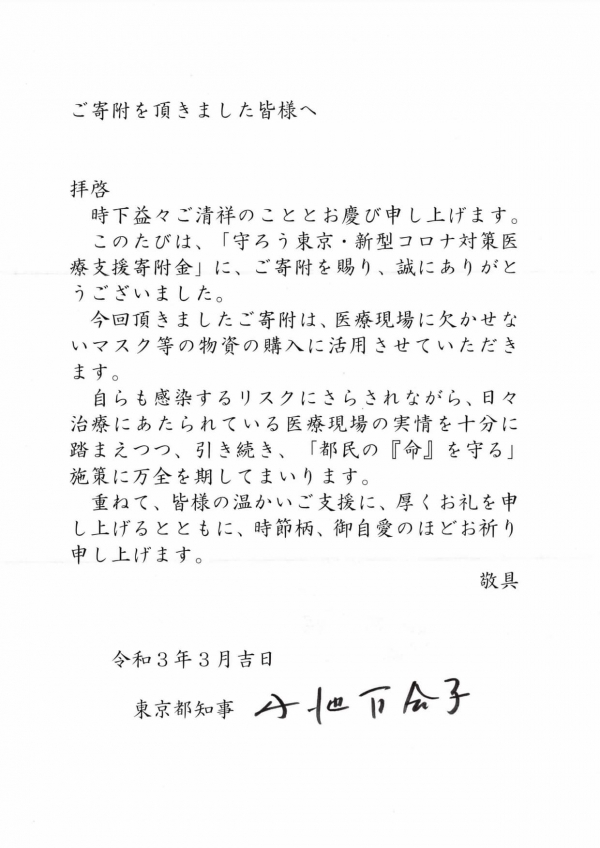 ご寄附を頂きました皆様へ
拝啓
時下益々ご清祥のこととお慶び申し上げます。
このたびは、「守ろう東京・新型コロナ対策医
療支援寄附金」に、ご寄附を賜り、誠にありがと
うございました。
今回頂きましたご寄附は、医療現場に欠かせな
いマスク等の物資の購入に活用させていただき
ます。
自らも感染するリスクにさらされながら、日々
治療にあたられている医療現場の実情を十分に
踏まえつつ、引き続き、「都民の『命』を守る」
施策に万全を期してまいります。
重ねて、皆様の温かいご支援に、厚くお礼を申
し上げるとともに、時節柄、御自愛のほどお祈り
申し上げます。
敬具
令和３年３月吉日
東京都知事 小池百合子